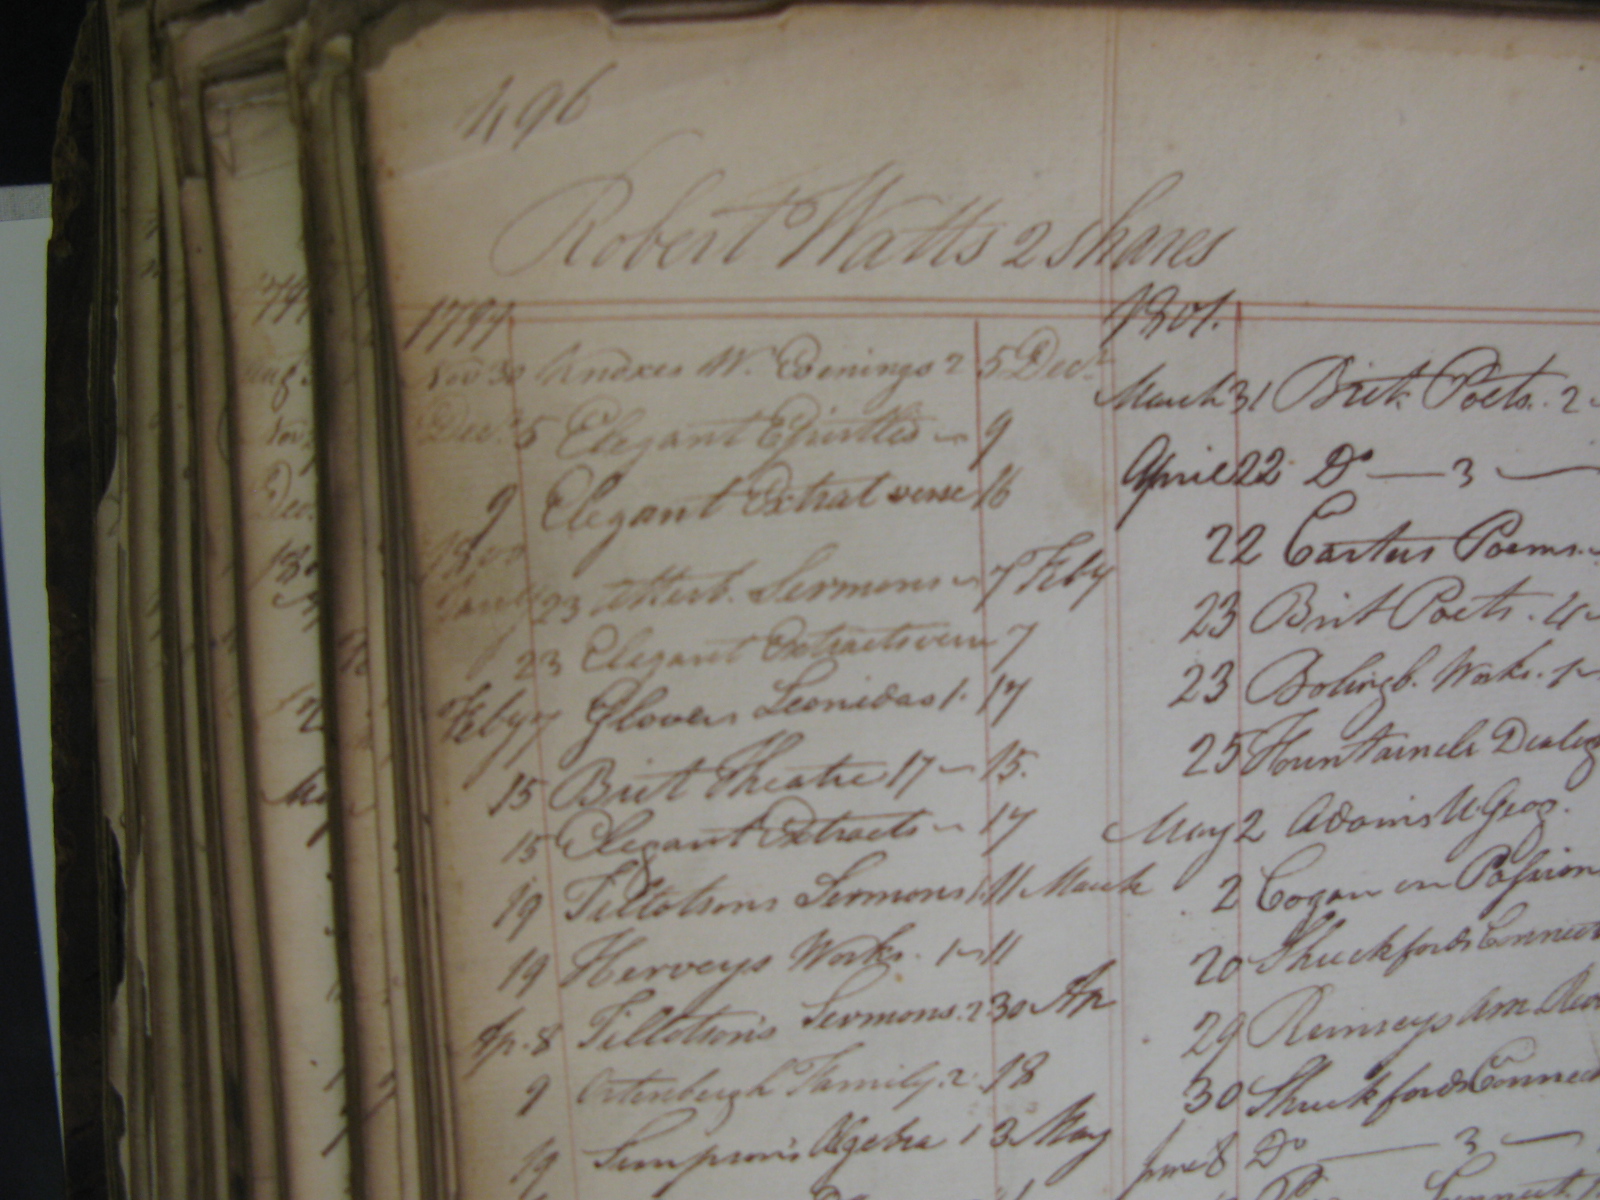 496
Robert Watts 2 shares
1799
Nov 30 Knoxes W. Evenings 2 5 Decr
Decr 5 Elegant Epistles 9
9 Elegant Extrat verse 16
1800
23 Atterb. Sermons 7 Feby
23 Elegant Extracts vers 7
Feby 7 Glovers Leonidas 1. 17
15 Brit Theatre 17 15.
15 Elegant Extracts 17
19 Tillotsons Sermons 1 11 March
19 Herveys Works. 1 11
Ap. 8 Tillotsons Sermons. 2 30 Ap
9 Ortenburgh Family. 2. 18
19 Simpson's Algebra 1 3 May
1801.
March 31 Brit. Poets. 2
April 22 Do — 3 —
22 Carters Poems.
23 Brit Poets. 4
23 Bolingb. Works. 1
25 Dialog
May 2 Adams U Geog.
2 Cogan on Passion
20 Shuckfords Connect
29 Ramseys Am Revo
30 Shuckfords Connect
June 8 Do — 3 —